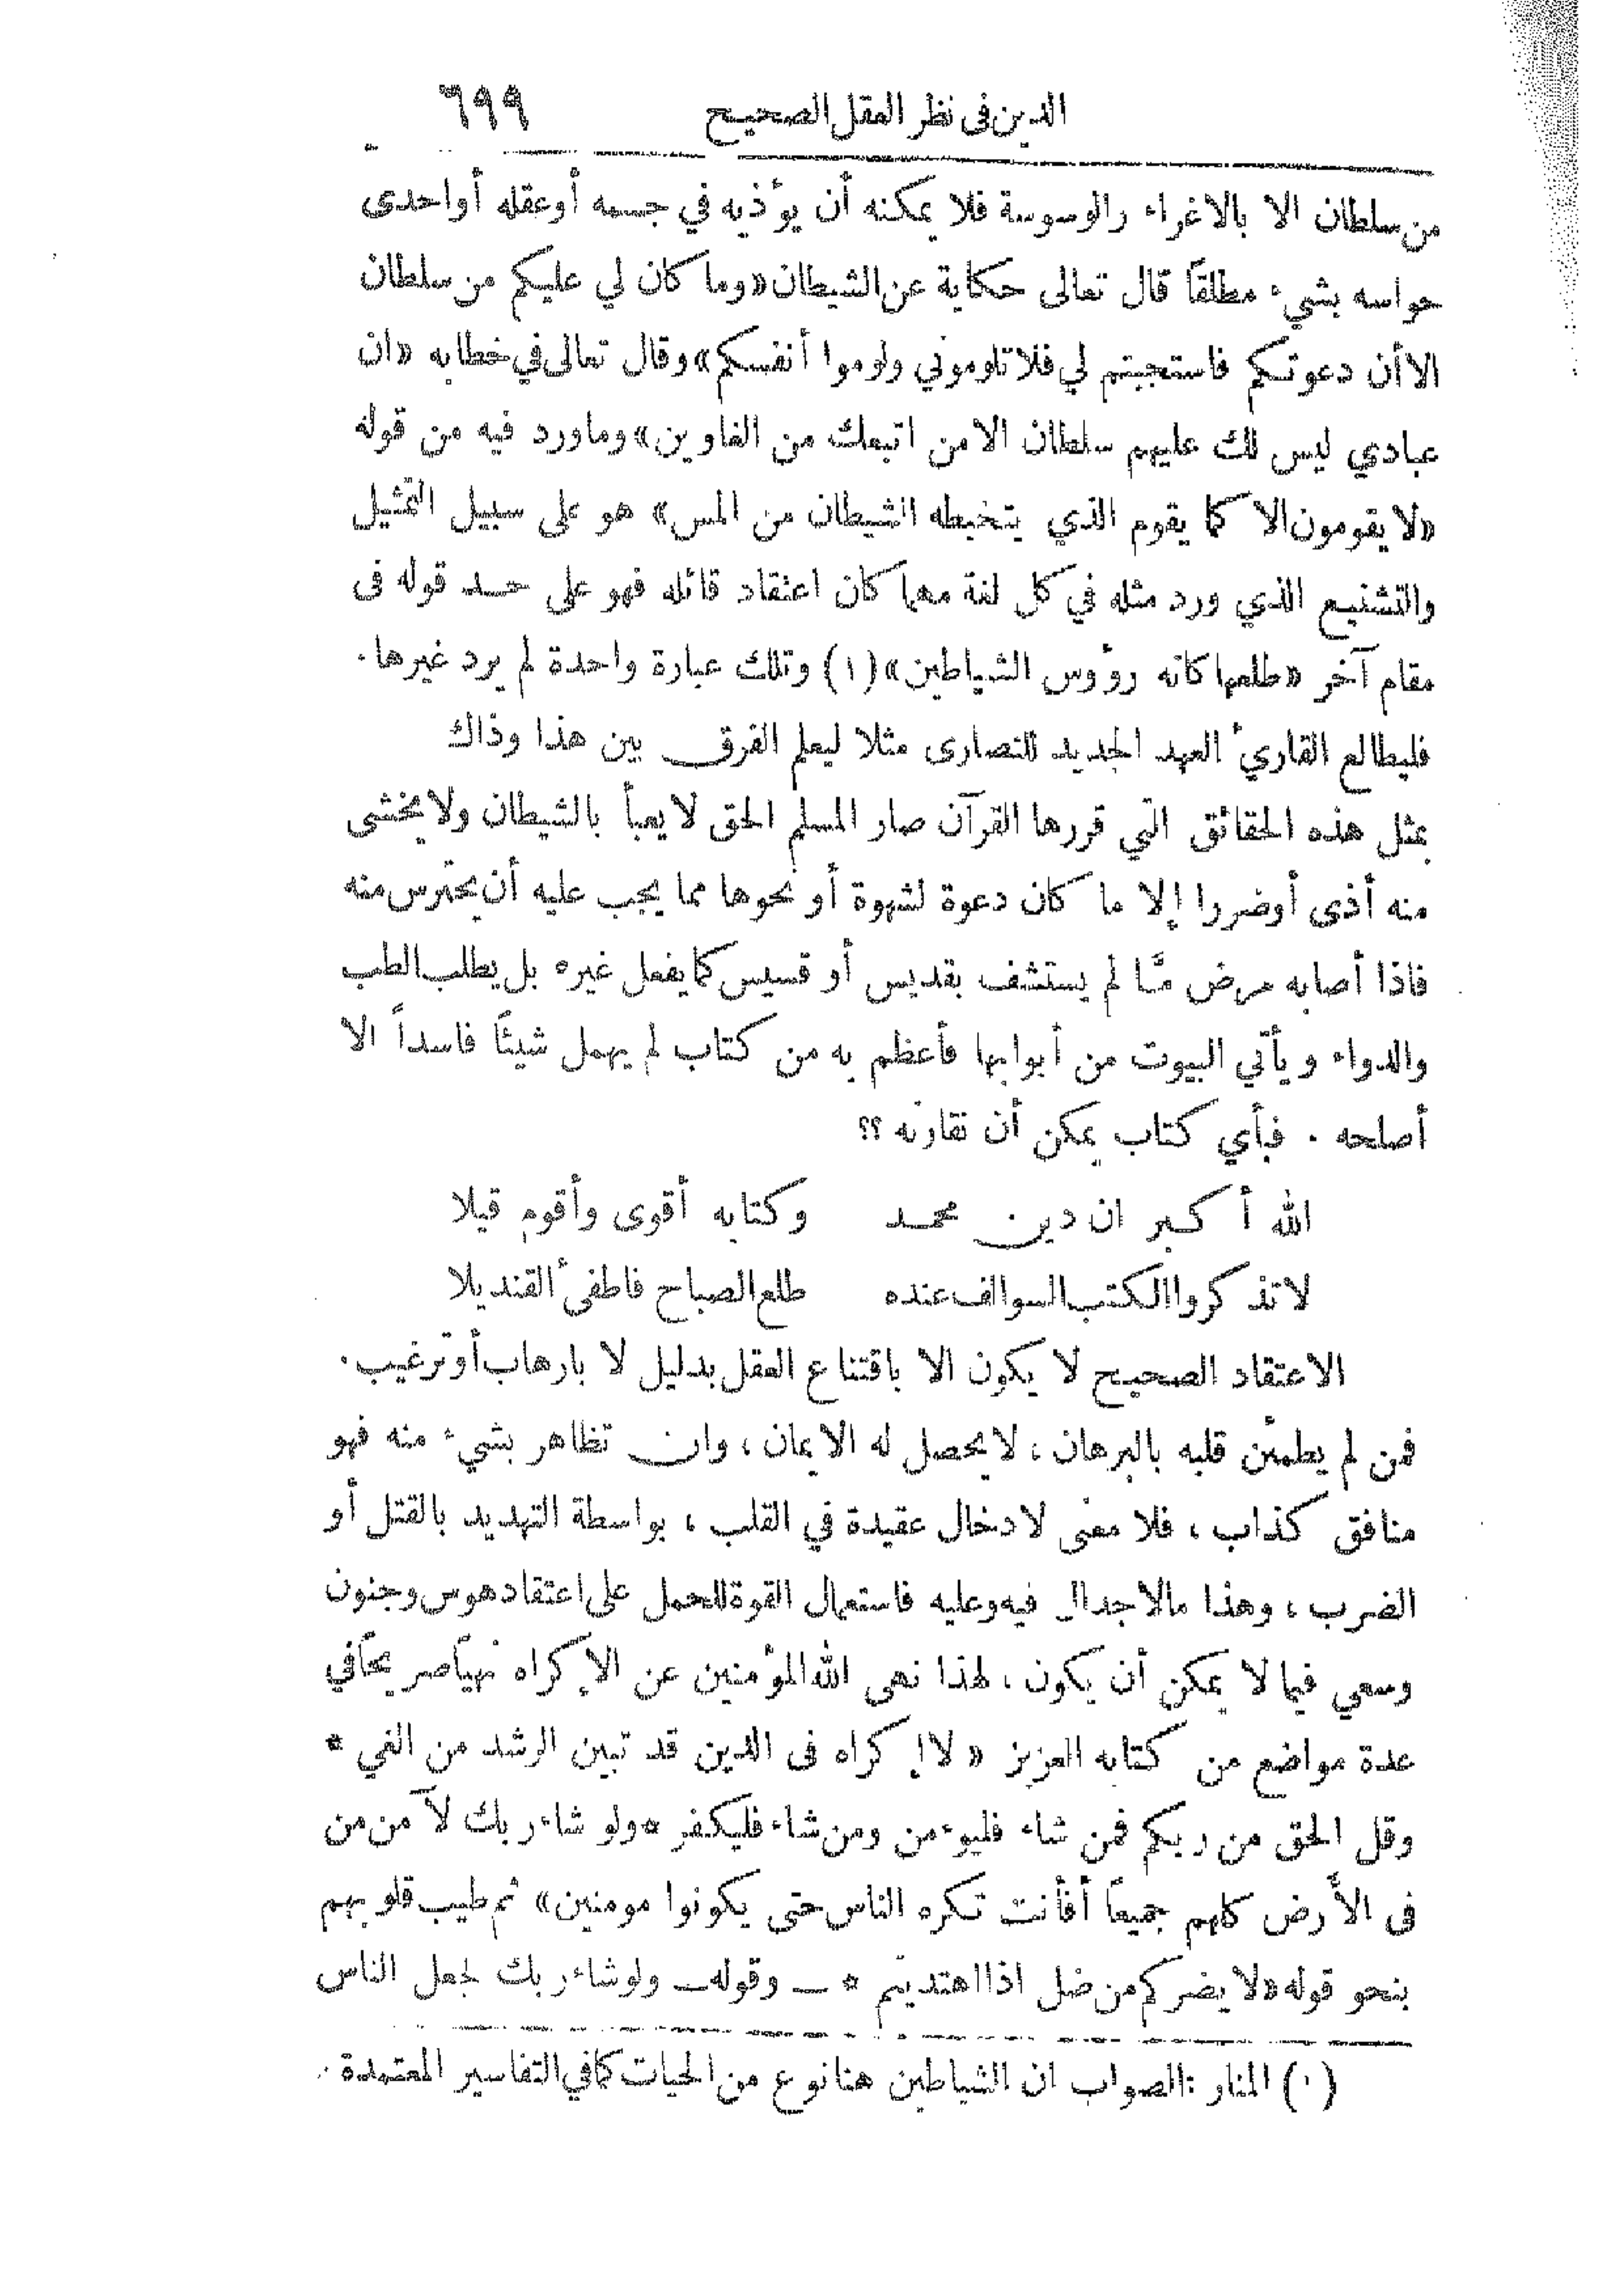 الدين في نظر العقل الصحيح ٦٩٩
من سلطان الا بالاغراء والوسوسة فلا يمكنه أن يؤذيه في جسمه أو عقله أو احدى
حواسه بشيء مطلقاً قال تعالى حكاية عن الشيطان «وما كان لي عليكم من سلطان
الا أن دعوتكم فاستجبتم لي فلا تلوموني ولوموا أنفسكم» وقال تعالى في خطابه «ان
عبادي ليس لك عليهم سلطان الا من اتبعك من الغاوين» وما ورد فيه من قوله
«لا يقومون الا كما يقوم الذي يتخبطه الشيطان من المس» هو على سبيل التمثيل
والتشنيع الذي ورد مثله في كل لغة مهما كان اعتقاد قائله فهو على حد قوله فى
مقام آخر «طلعها كانه رؤوس الشياطين» (١) وتلك عبارة واحدة لم يرد غيرها.
فليطالع القاريء العهد الجديد للنصارى مثلا ليعلم الفرق بين هذا وذاك
بمثل هذه الحقائق التي قررها القرآن صار المسلم الحق لا يعبأ بالشيطان ولا يخشى
منه أذى أو ضررا إلا ما كان دعوة لشهوة أو نحوها مما يجب عليه أن يحترس منه
فاذا أصابه مرض مّا لم يستشف بقديس أو قسيس كما يفعل غيره بل يطلب الطب
والدواء ويأتي البيوت من أبوابها فأعظم به من كتاب لم يهمل شيئاً فاسداً الا
أصلحه . فبأي كتاب يمكن أن نقارنه ؟؟
الله أكبر ان دين محمد وكتابه أقوى وأقوم قيلا
لا تذكروا الكتب السوالف عنده طلع الصباح فاطفئ القنديلا
الاعتقاد الصحيح لا يكون الا باقتناع العقل بدليل لا بارهاب أو ترغيب.
فمن لم يطمئن قلبه بالبرهان ، لا يحصل له الايمان ، وان تظاهر بشيء منه فهو
منافق كذاب ، فلا معنى لادخال عقيدة في القلب ، بواسطة التهديد بالقتل أو
الضرب ، وهذا مالا جدال فيه وعليه فاستعمال القوة للحمل على اعتقاد هوس وجنون
وسعي فيما لا يمكن أن يكون ، لهذا نهى الله المؤمنين عن الإكراه نهياً صريحاً في
عدة مواضع من كتابه العزيز « لا إكراه فى الدين قد تبين الرشد من الغي *
وقل الحق من ربكم فمن شاء فليؤمن ومن شاء فليكفر * ولو شاء ربك لآمن من
فى الأرض كلهم جميعاً أفأنت تكره الناس حتى يكونوا مومنين» ثم طيب قلوبهم
بنحو قوله «لا يضركم من ضل اذا اهتديتم * — وقوله — ولو شاء ربك لجعل الناس
(١) المنار : الصواب ان الشياطين هنا نوع من الحيات كما في التفاسير المعتمدة .